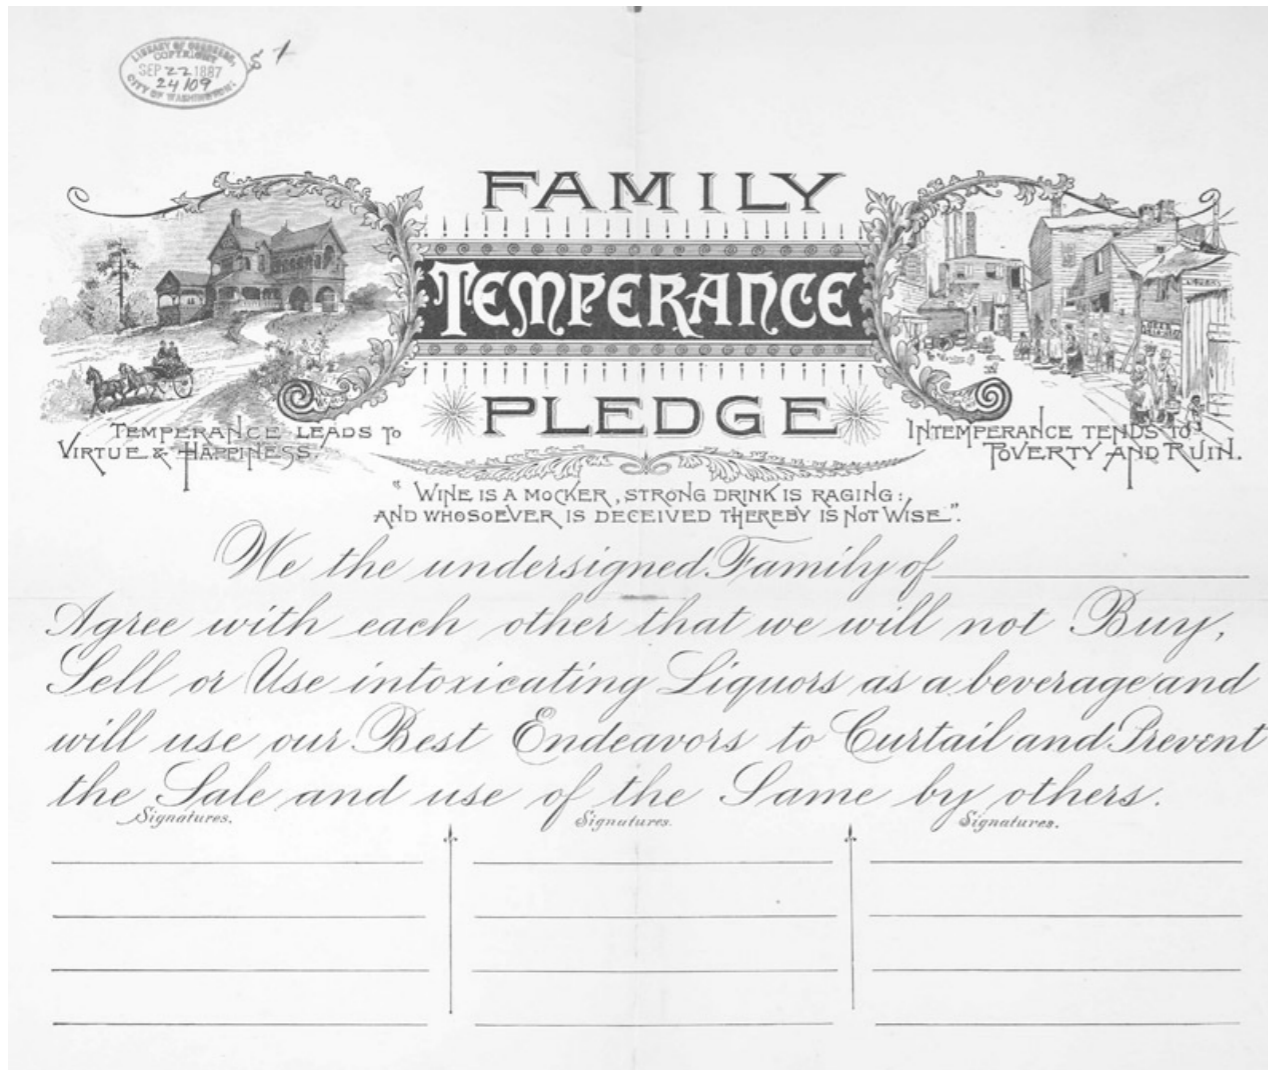 LIBRARY OF CONGRESS,
COPYRIGHT
SEP 22 1887
24109
CITY OF WASHINGTON.
FAMILY
TEMPERANCE
PLEDGE
TEMPERANCE LEADS TO
VIRTUE & HAPPINESS.
INTEMPERANCE TENDS TO
POVERTY AND RUIN.
"WINE IS A MOCKER, STRONG DRINK IS RAGING:
AND WHOSOEVER IS DECEIVED THEREBY IS NOT WISE".
We the undersigned Family of
Agree with each other that we will not Buy,
Sell or Use intoxicating Liquors as a beverage and
will use our Best Endeavors to Curtail and Prevent
the Sale and use of the Same by others.
Signatures.
Signatures.
Signatures.